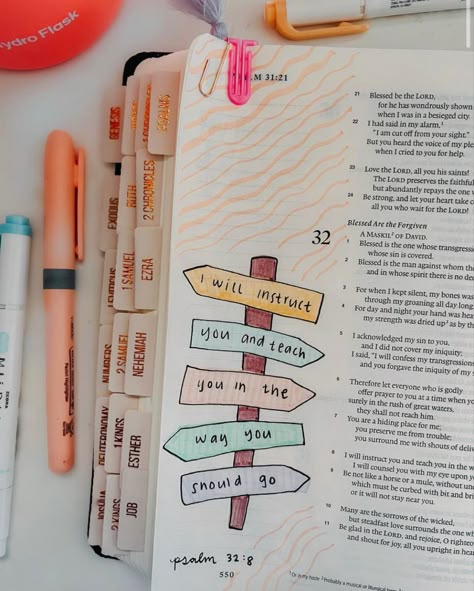 Hydro Flask
PSALM 31:21
GENESIS
1 CHRONICLES
PSALMS
EXODUS
RUTH
2 CHRONICLES
LEVITICUS
1 SAMUEL
EZRA
NUMBERS
2 SAMUEL
NEHEMIAH
DEUTERONOMY
1 KINGS
ESTHER
JOSHUA
2 KINGS
JOB
I will instruct
you and teach
you in the
way you
should go
psalm 32:8
550
21 Blessed be the LORD,
for he has wondrously shown
when I was in a besieged city.
22 I had said in my alarm,
"I am cut off from your sight."
But you heard the voice of my
when I cried to you for help.
23 Love the LORD, all you his saints!
The LORD preserves the faithful
but abundantly repays the one
24 Be strong, and let your heart take
all you who wait for the LORD!
Blessed Are the Forgiven
A MASKIL OF DAVID.
32
1 Blessed is the one whose
whose sin is covered.
2 Blessed is the man against whom the
and in whose spirit there is no
3 For when I kept silent, my bones
through my groaning all day
4 For day and night your hand was
my strength was dried up as by the
5 I acknowledged my sin to you,
and I did not cover my iniquity;
I said, "I will confess my
and you forgave the iniquity of my
6 Therefore let everyone who is godly
offer prayer to you at a time when
surely in the rush of great waters,
they shall not reach him.
7 You are a hiding place for me;
you preserve me from trouble;
you surround me with shouts of
8 I will instruct you and teach you in the
I will counsel you with my eye upon
9 Be not like a horse or a mule, without
which must be curbed with bit and
or it will not stay near you.
10 Many are the sorrows of the wicked,
but steadfast love surrounds the one
11 Be glad in the LORD, and rejoice, O
and shout for joy, all you upright in